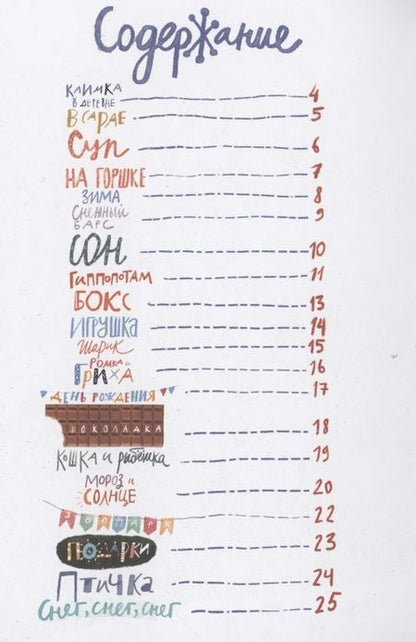 Содержание
Климка
в деревне 4
В сарае 5
Суп 6
На горшке 7
Зима 8
Снежный
барс 9
Сон 10
Гиппопотам 11
Бокс 13
Игрушка 14
Шарик 15
Ромка и
Гриха 16
День рождения 17
Шоколадка 18
Кошка и рыбёшка 19
Мороз и
солнце 20
Зоопарк 22
Подарки 23
Птичка 24
Снег, снег, снег 25